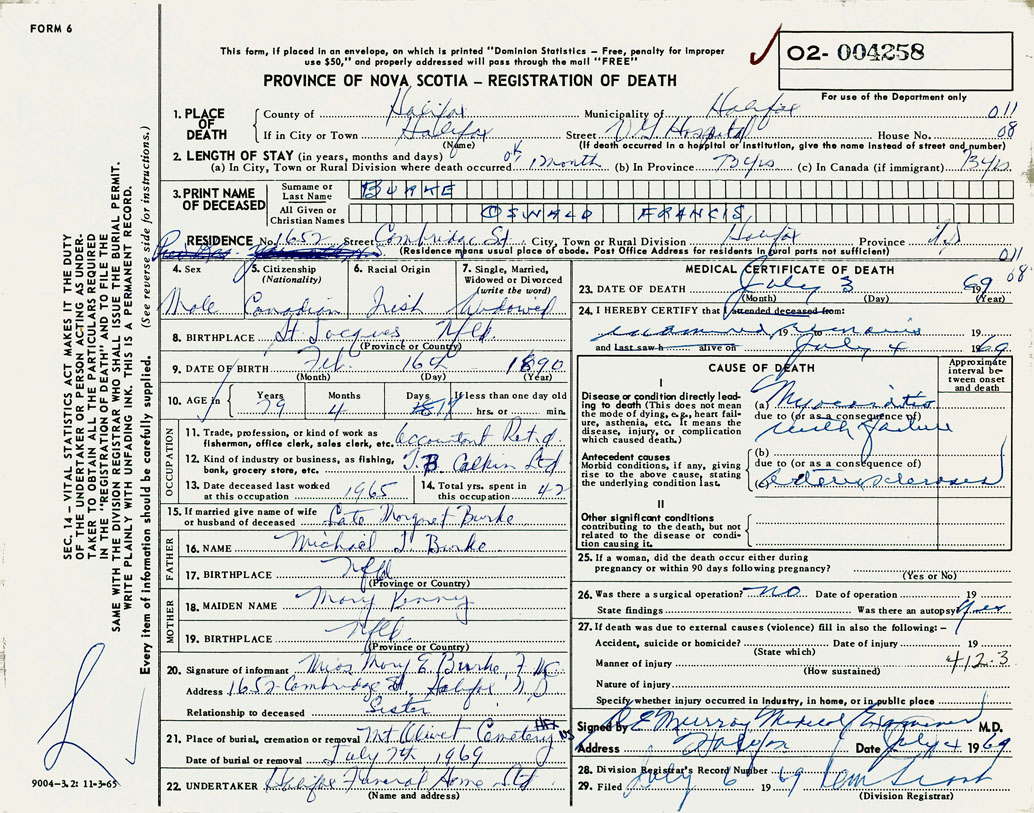 FORM 6
This form, if placed in an envelope, on which is printed "Dominion Statistics – Free, penalty for improper
use $50," and properly addressed will pass through the mail "FREE"
O2- 004258
For use of the Department only
PROVINCE OF NOVA SCOTIA – REGISTRATION OF DEATH
1. PLACE OF DEATH
County of Halifax Municipality of Halifax 011
If in City or Town Halifax Street V G Hospital House No. 08
(Name) (If death occurred in a hospital or institution, give the name instead of street and number)
2. LENGTH OF STAY (in years, months and days)
(a) In City, Town or Rural Division where death occurred 1 month (b) In Province 73 yrs (c) In Canada (if immigrant) 73 yrs
3. PRINT NAME OF DECEASED
Surname or Last Name BURKE
All Given or Christian Names OSWALD FRANCIS
RESIDENCE No. 1652 Street Cambridge St City, Town or Rural Division Halifax Province N.S
(Residence means usual place of abode. Post Office Address for residents in rural parts not sufficient)
011
08
4. Sex
Male
5. Citizenship
(Nationality)
Canadian
6. Racial Origin
Irish
7. Single, Married,
Widowed or Divorced
(write the word)
Widowed
8. BIRTHPLACE St. Jacques Nfld.
(Province or Country)
9. DATE OF BIRTH Feb. 16th 1890
(Month) (Day) (Year)
10. AGE in
Years 79
Months 4
Days
If less than one day old
hrs. or min.
OCCUPATION
11. Trade, profession, or kind of work as
fisherman, office clerk, sales clerk, etc. Accountant Ret'd.
12. Kind of industry or business, as fishing,
bank, grocery store, etc. T.B. Calkin Ltd
13. Date deceased last worked
at this occupation 1965
14. Total yrs. spent in
this occupation 42
15. If married give name of wife
or husband of deceased Late Margaret Burke
FATHER
16. NAME Michael J. Burke
17. BIRTHPLACE Nfld
(Province or Country)
MOTHER
18. MAIDEN NAME Mary Penny
19. BIRTHPLACE Nfld.
(Province or Country)
20. Signature of informant Miss Mary E. Burke
Address 1652 Cambridge St. Halifax N S
Relationship to deceased Sister
21. Place of burial, cremation or removal Mt. Olivet Cemetery Hfx NS
Date of burial or removal July 7th 1969
22. UNDERTAKER Halifax Funeral Home Ltd
(Name and address)
MEDICAL CERTIFICATE OF DEATH
23. DATE OF DEATH July 3 1969
(Month) (Day) (Year)
24. I HEREBY CERTIFY that I attended deceased from:
examined 19 remains 19
and last saw h alive on July 4 1969
CAUSE OF DEATH
Approximate
interval be-
tween onset
and death
I
Disease or condition directly lead-
ing to death (This does not mean
the mode of dying, e.g., heart fail-
ure, asthenia, etc. It means the
disease, injury, or complication
which caused death.)
(a) Myocarditis
due to (or as a consequence of)
with failure
Antecedent causes
Morbid conditions, if any, giving
rise to the above cause, stating
the underlying condition last.
(b)
due to (or as a consequence of)
(c) Arteriosclerosis
II
Other significant conditions
contributing to the death, but not
related to the disease or condi-
tion causing it.
25. If a woman, did the death occur either during
pregnancy or within 90 days following pregnancy?
(Yes or No)
26. Was there a surgical operation? no Date of operation 19
State findings Was there an autopsy? yes
27. If death was due to external causes (violence) fill in also the following: –
Accident, suicide or homicide? Date of injury 19
(State which)
Manner of injury 412.3
(How sustained)
Nature of injury
Specify whether injury occurred in industry, in home, or in public place
Signed by R E Murray Medical Examiner M.D.
Address Halifax Date July 4 1969
28. Division Registrar's Record Number
29. Filed July 6 1969
(Division Registrar)
SEC. 14 – VITAL STATISTICS ACT MAKES IT THE DUTY
OF THE UNDERTAKER OR PERSON ACTING AS UNDER-
TAKER TO OBTAIN ALL THE PARTICULARS REQUIRED
IN THE "REGISTRATION OF DEATH" AND TO FILE THE
SAME WITH THE DIVISION REGISTRAR WHO SHALL ISSUE THE BURIAL PERMIT.
WRITE PLAINLY WITH UNFADING INK. THIS IS A PERMANENT RECORD.
Every item of information should be carefully supplied. (See reverse side for instructions.)
9004-3.2: 11-3-65